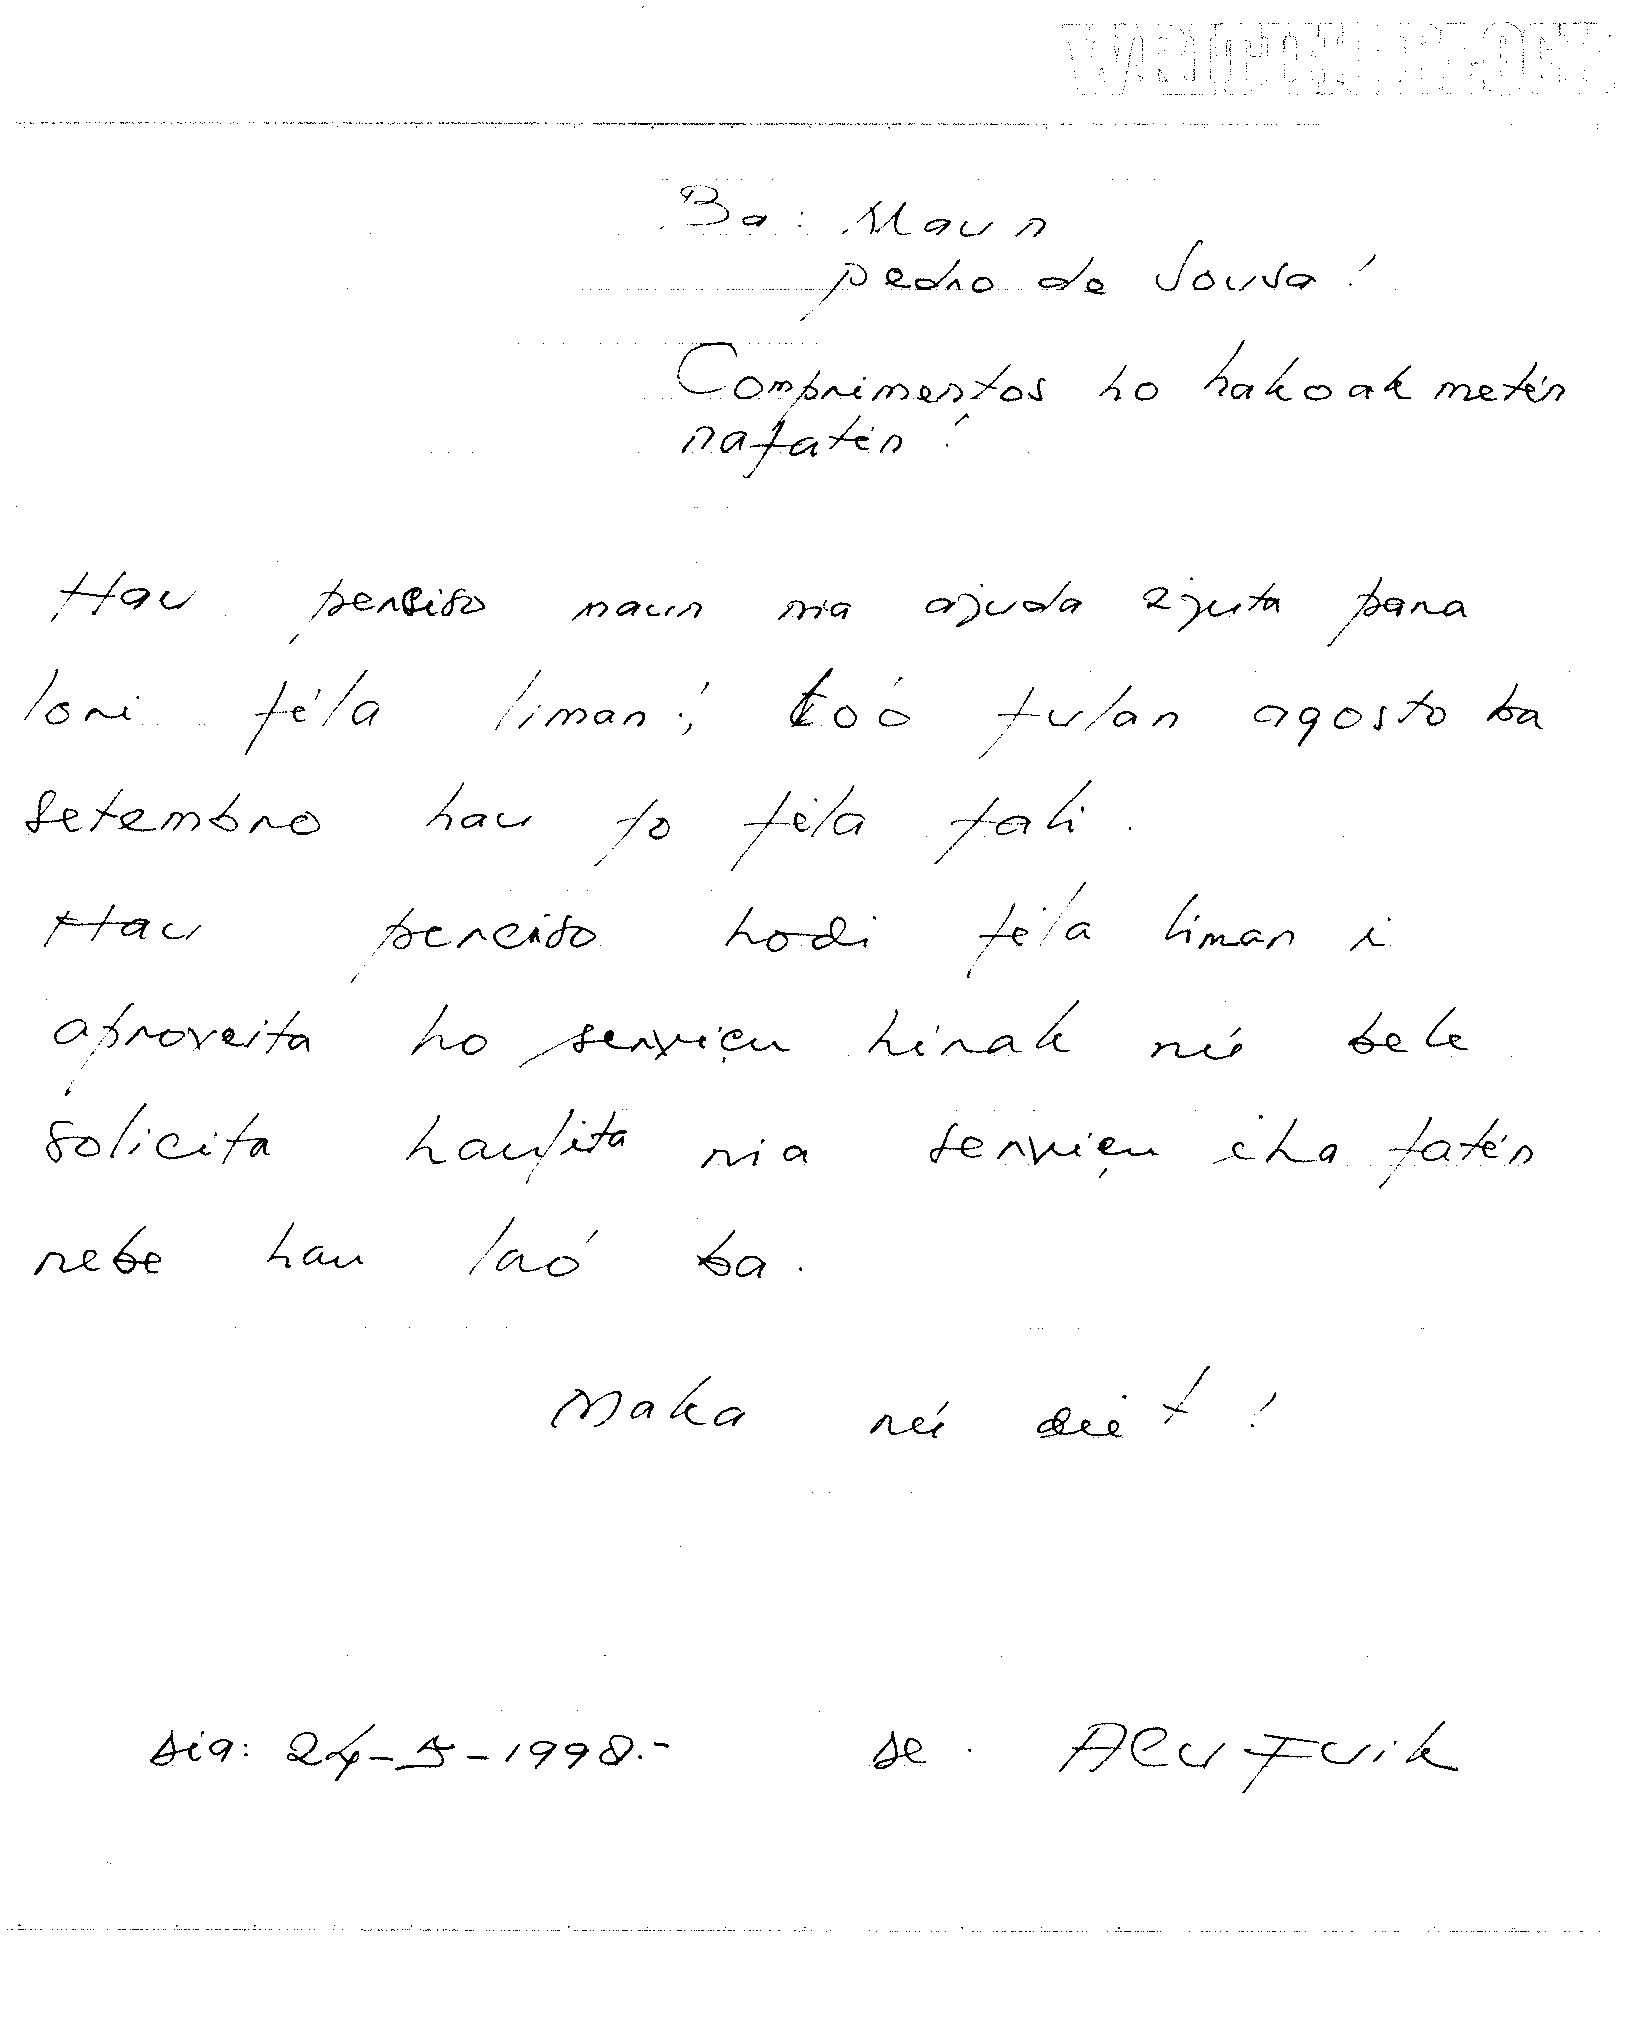 Ba: Maun
pedro de Sousa!
Comprimentos ho hakoak metén
nafatén!
Hau perciso maun nia ajuda ajuta para
lori féla liman; toó fulan agosto ba
setembro hau fo féla fali.
Hau perciso hodi féla liman i
aproveita ho serviçu hirak né bele
solicita hau nia serviçu iha fatén
nebe hau laó ba.
Maka né deit!
dia: 24-5-1998.-
se. Alu Fuik